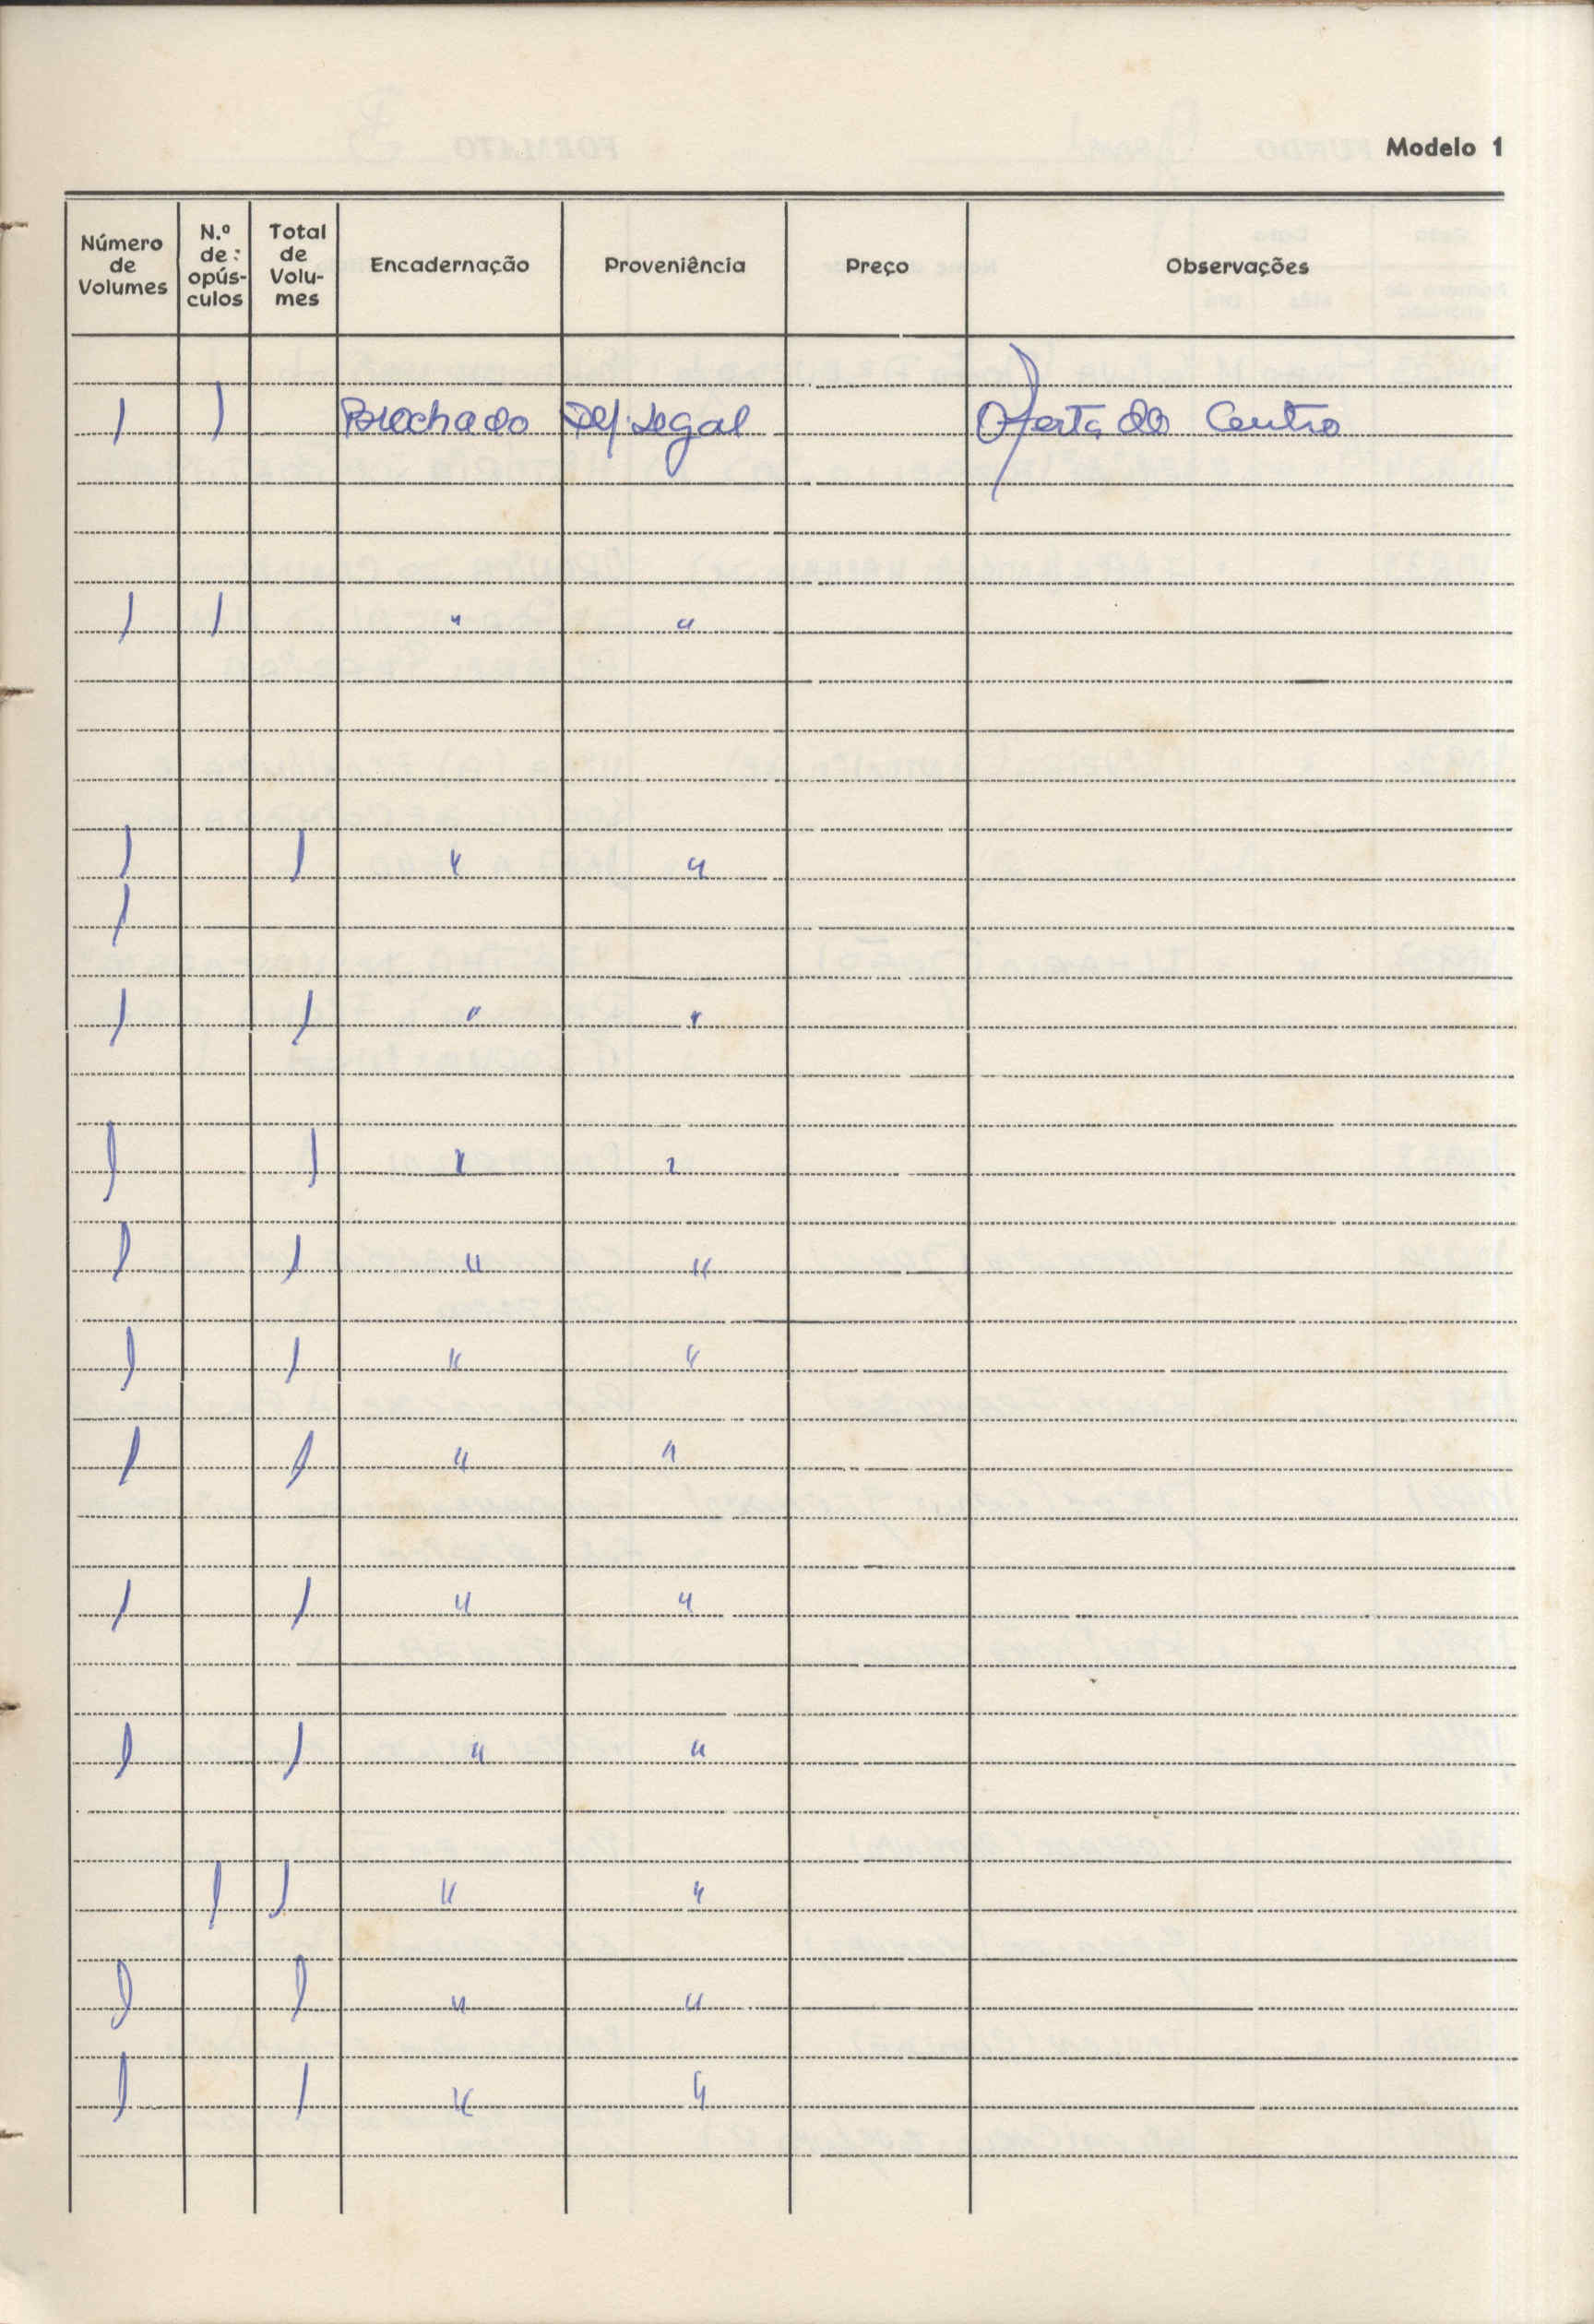 Modelo 1
Número de Volumes N.º de: opús-culos Total de Volu-mes Encadernação Proveniência Preço Observações
1 1 Brochado Dep. Legal Oferta do Centro
1 1 " "
1 1 " "
1
1 1 " "
1 1 " "
1 1 " "
1 1 " "
1 1 " "
1 1 " "
1 1 " "
1 1 " "
1 1 " "
1 1 " "